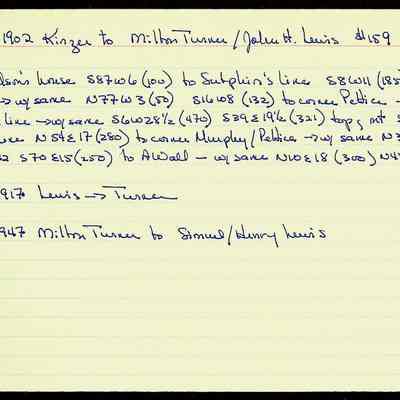 1902 Kinzer to Milton Turner/John H. Lewis $159
dson's house S87W6 (100) to Sutphin's line S86W11 (185
→ w/ same N77W3 (50) S16W8 (132) to corner Pettice -
line → w/ same S6W28½ (470) S39E19½ (321) top, not S
N54E17 (280) to corner Murphy/Pettice → w/ same N3
S70E15 (250) to AWall — w/ same N10E18 (300) N4
1917 Lewis → Turner
947 Milton Turner to Simuel/Henry Lewis